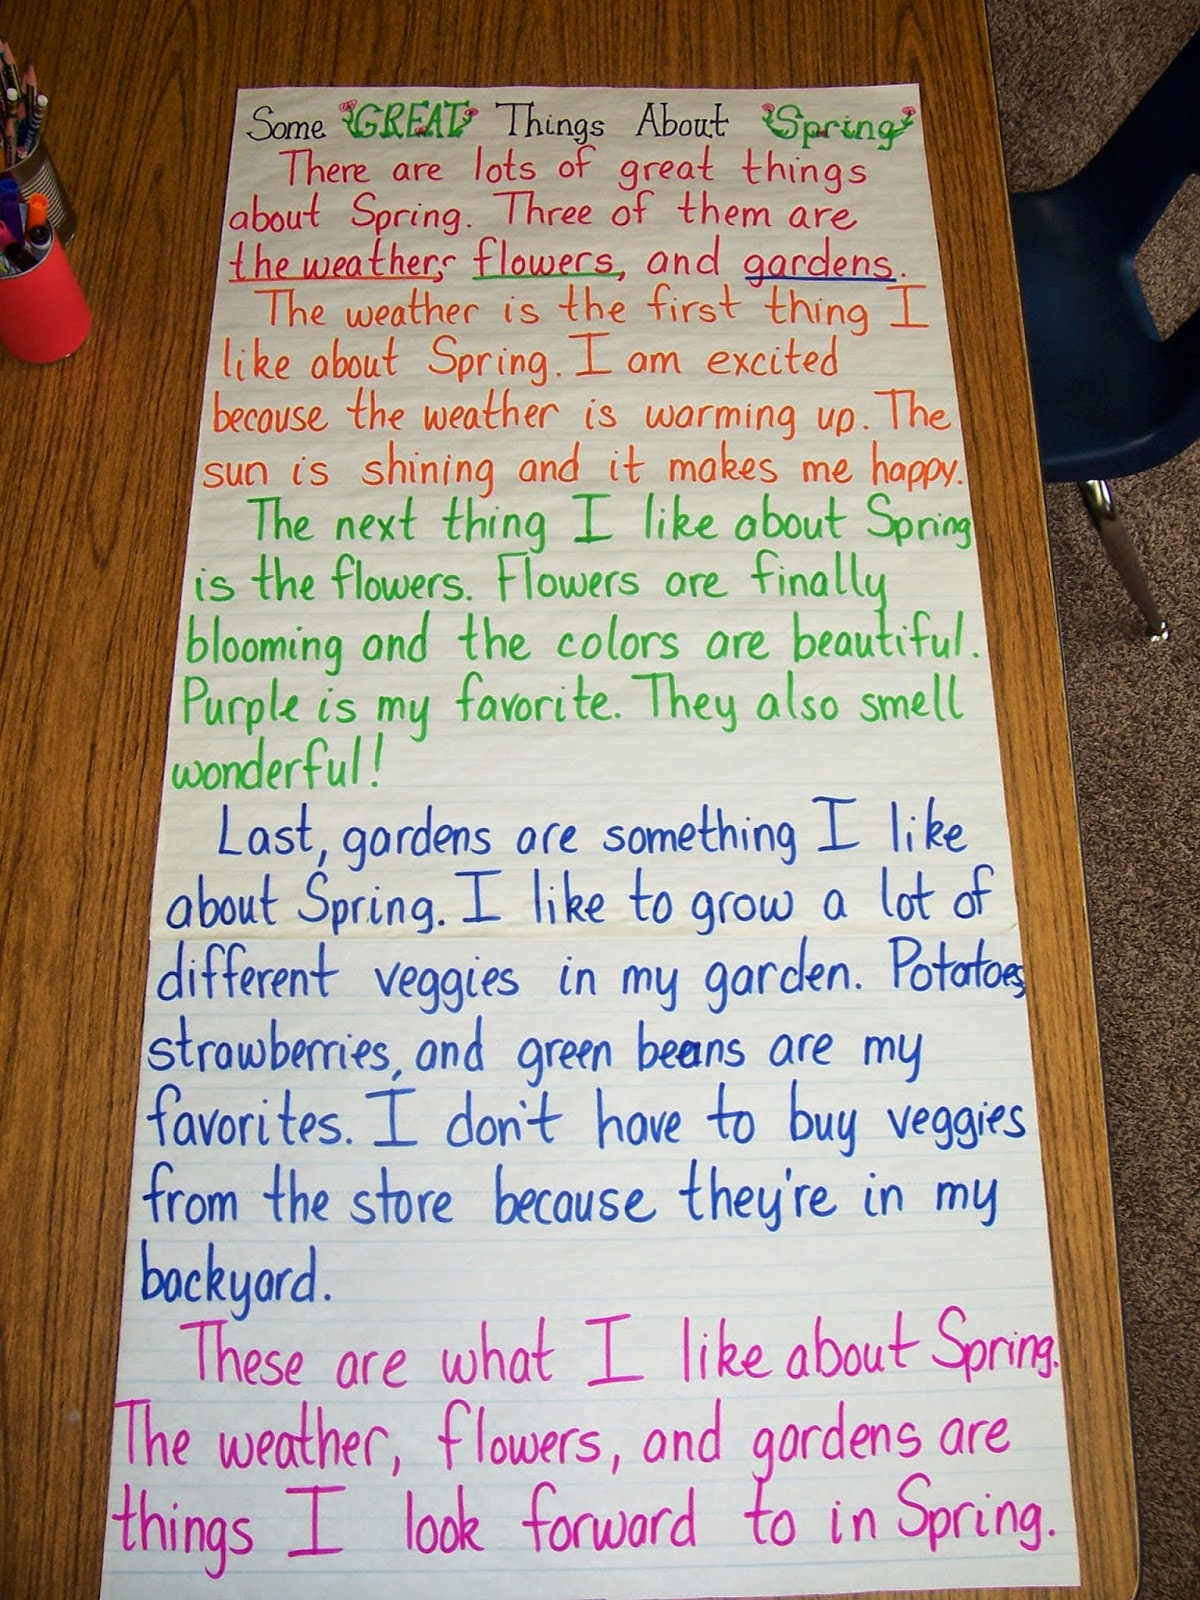 Some GREAT Things About Spring
There are lots of great things
about Spring. Three of them are
the weather, flowers, and gardens.
The weather is the first thing I
like about Spring. I am excited
because the weather is warming up. The
sun is shining and it makes me happy.
The next thing I like about Spring
is the flowers. Flowers are finally
blooming and the colors are beautiful.
Purple is my favorite. They also smell
wonderful!
Last, gardens are something I like
about Spring. I like to grow a lot of
different veggies in my garden. Potatoes,
strawberries, and green beans are my
favorites. I don't have to buy veggies
from the store because they're in my
backyard.
These are what I like about Spring.
The weather, flowers, and gardens are
things I look forward to in Spring.